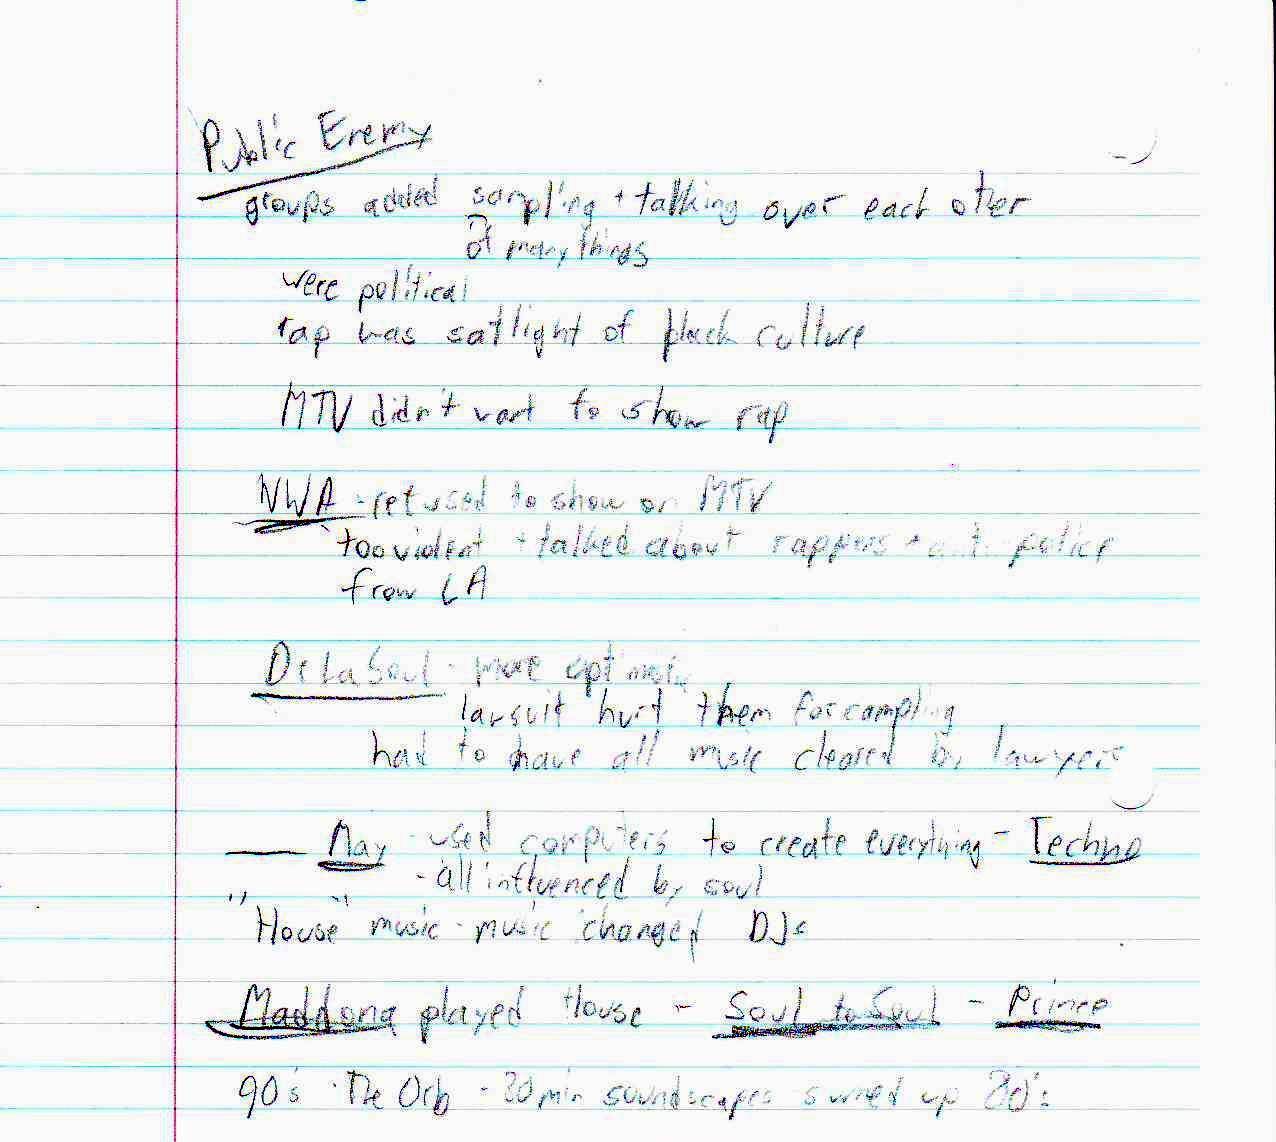 Public Enemy
groups added sampling + talking over each other
of many things
were political
rap was satlight of black culture
MTV didn't want to show rap
NWA - refused to show on MTV
too violent + talked about rappers + anti police
from LA
De La Soul - more optimistic
lawsuit hurt them for sampling
had to have all music cleared by lawyers
May - used computers to create everything - Techno
- all influenced by soul
"House" music - music changed DJs
Maddona played House - Soul to Soul - Prince
90's - The Orb - 20 min soundscapes summed up 80's